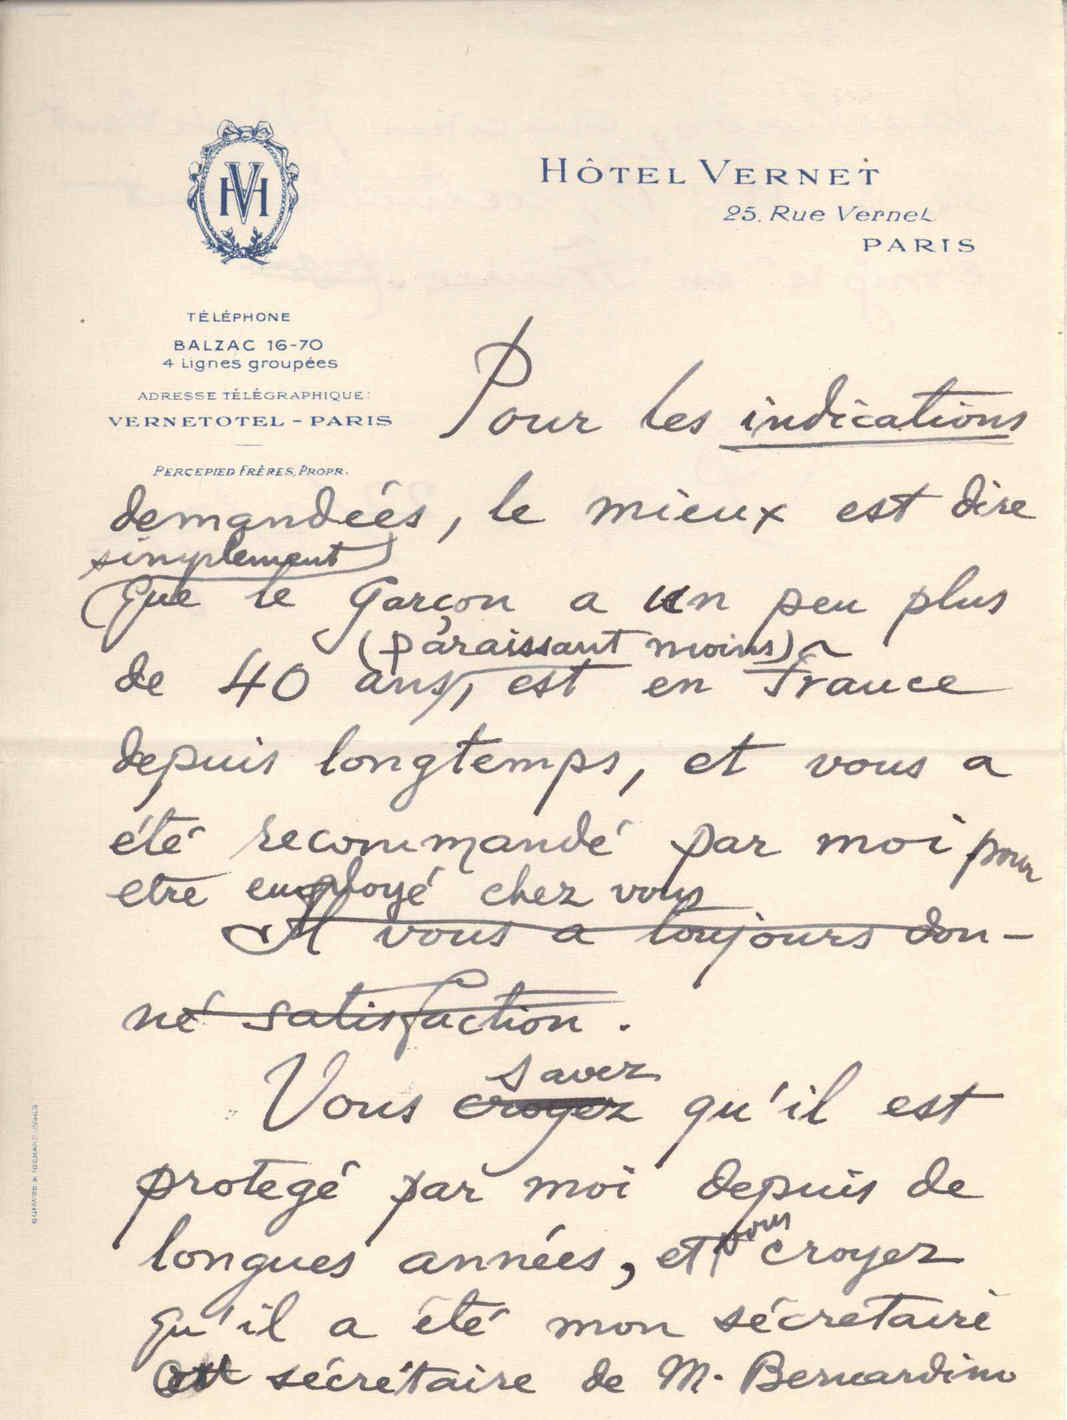 VH
HÔTEL VERNET
25. Rue Vernet
PARIS
TÉLÉPHONE
BALZAC 16-70
4 Lignes groupées
ADRESSE TÉLÉGRAPHIQUE:
VERNETOTEL - PARIS
PERCEPIED FRÈRES, PROPR.
Pour les indications
demandées, le mieux est dire
simplement
que le garçon a un peu plus
(paraissant moins)
de 40 ans, est en France
depuis longtemps, et vous a
été recommandé par moi pour
etre employé chez vous
Il vous a toujours don-
né satisfaction.
savez
Vous croyez qu'il est
protegé par moi depuis de
longues années, et vous croyez
qu'il a été mon sécretaire
ou sécrétaire de M. Bernardino